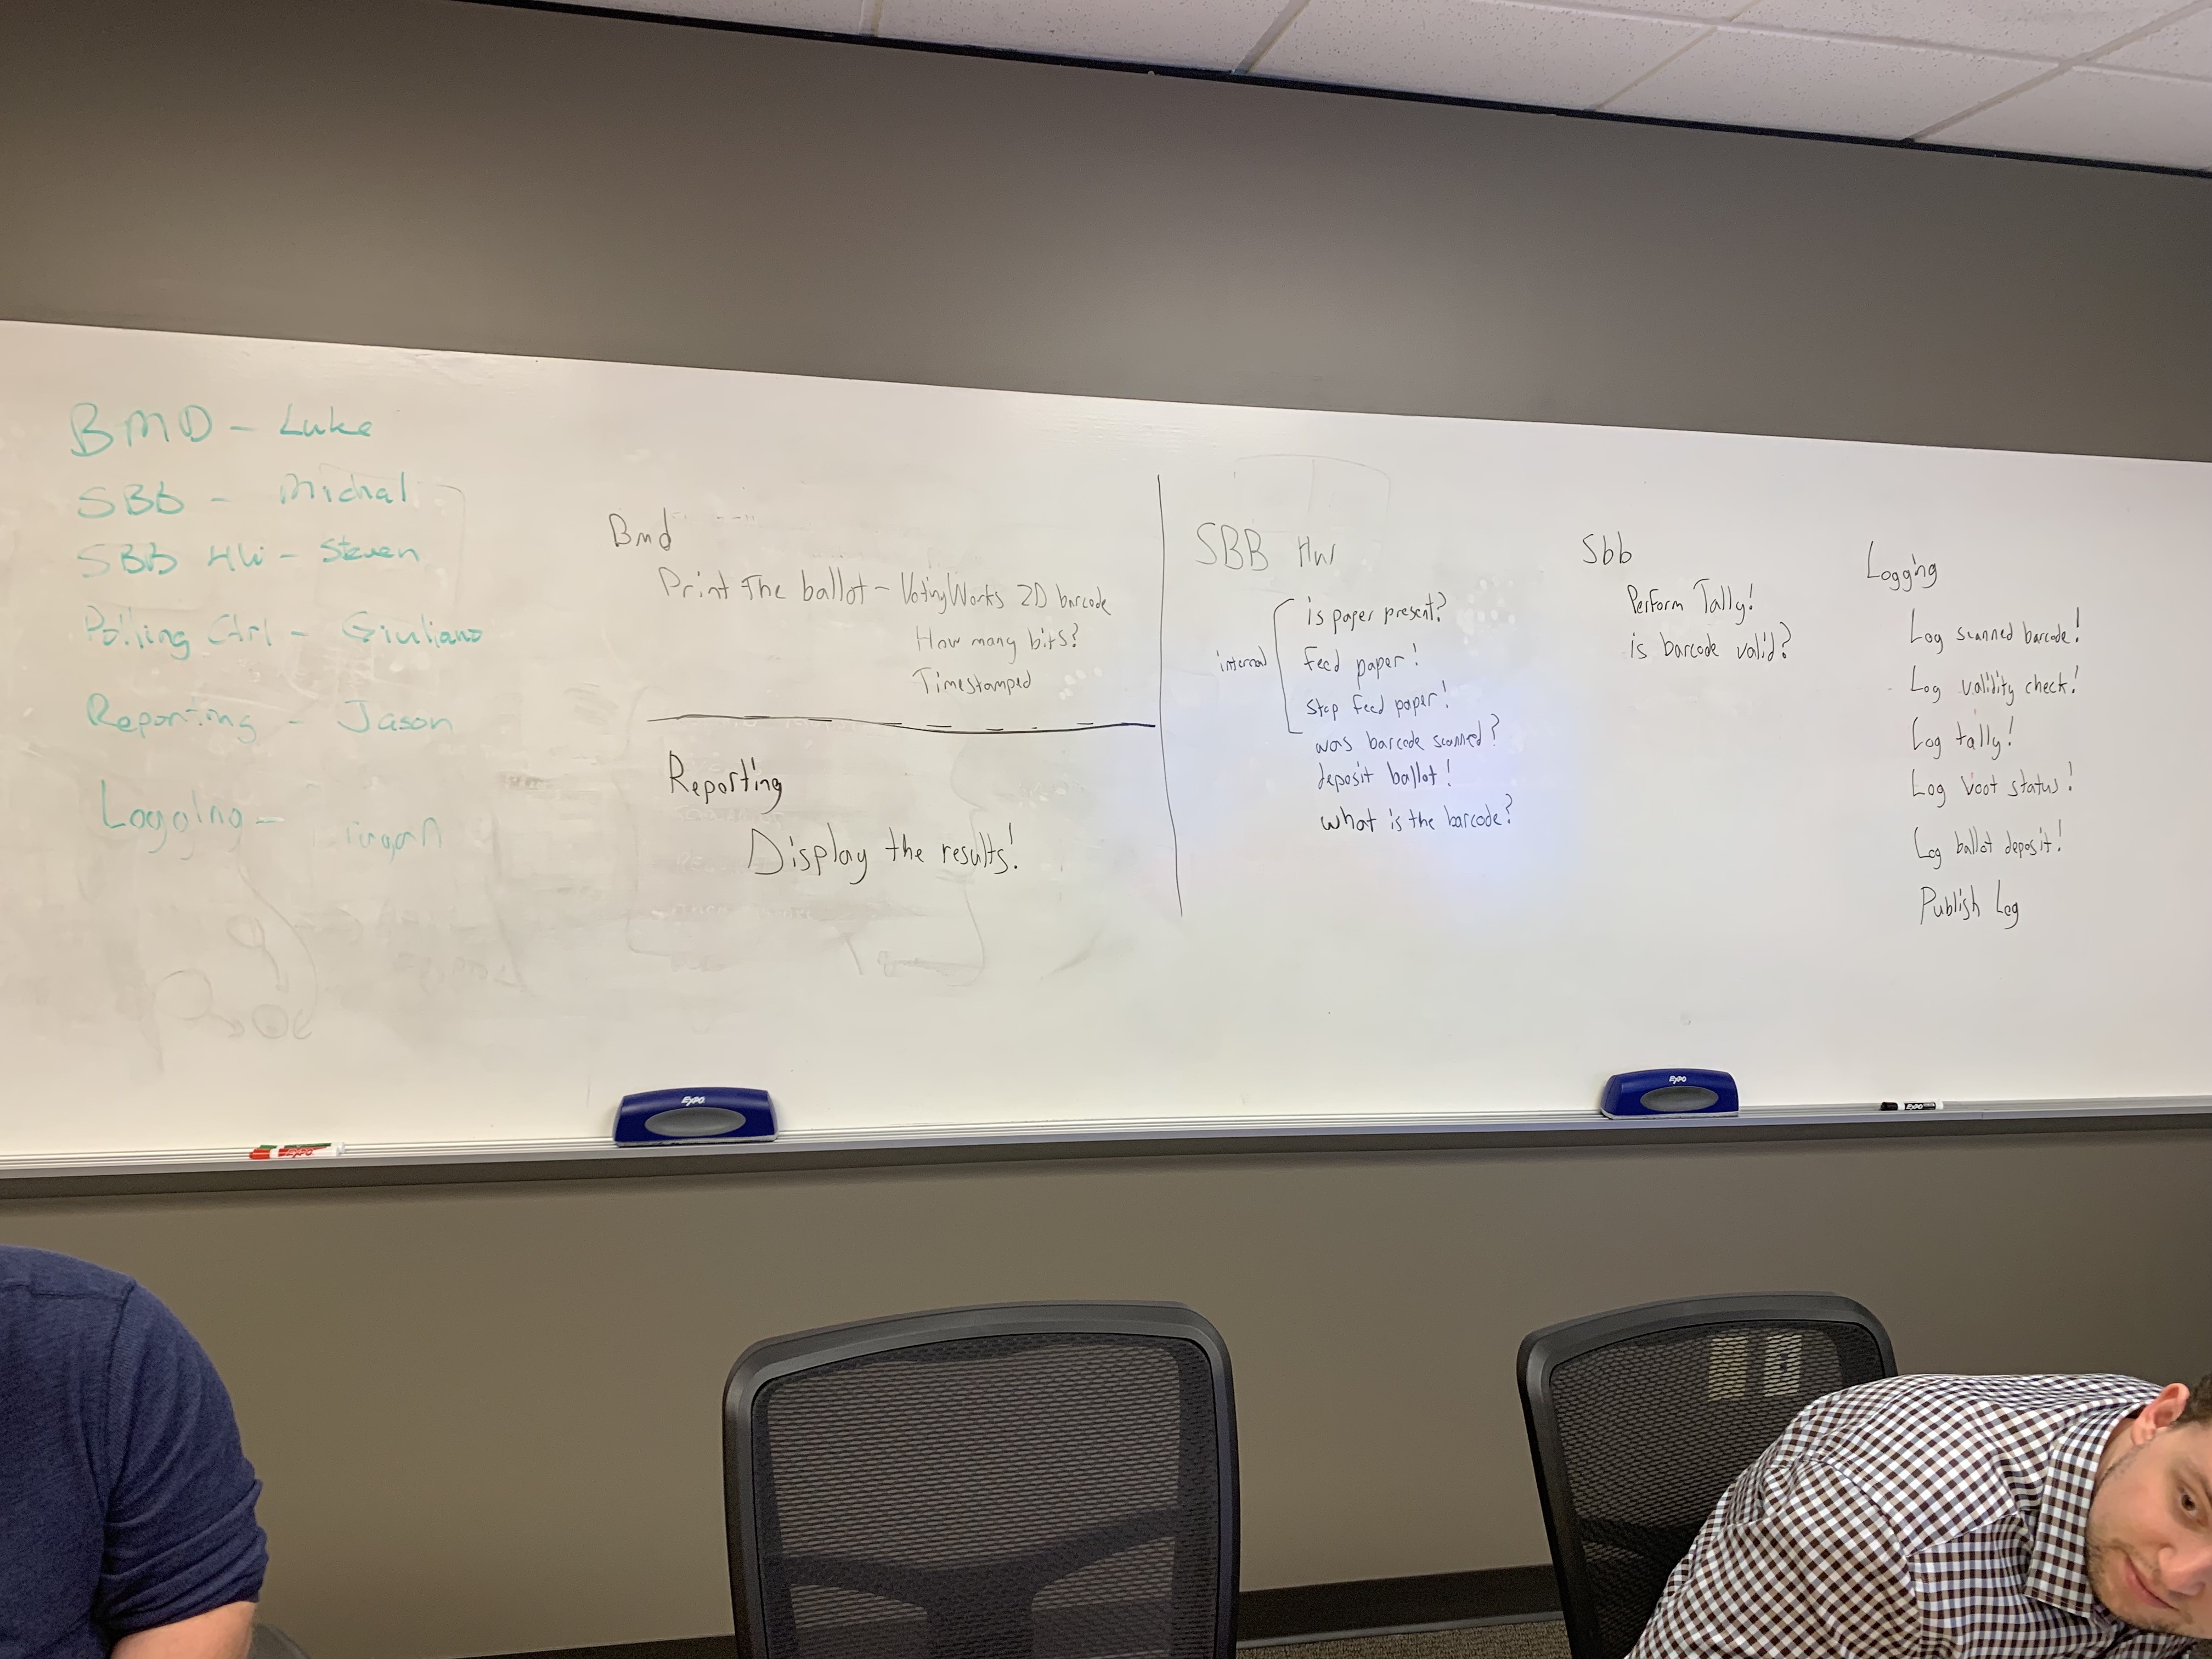 BMD - Luke
SBB - Michal
SBB HW - Steven
Polling Ctrl - Giuliano
Reporting - Jason
Logging -
Bmd
Print The ballot - VotingWorks 2D barcode
How many bits?
Timestamped
Reporting
Display the results!
SBB HW
internal
is paper present?
feed paper!
stop feed paper!
was barcode scanned?
deposit ballot!
what is the barcode?
Sbb
Perform Tally!
is barcode valid?
Logging
Log scanned barcode!
Log validity check!
Log tally!
Log voot status!
Log ballot deposit!
Publish Log
EXPO
EXPO
EXPO
EXPO